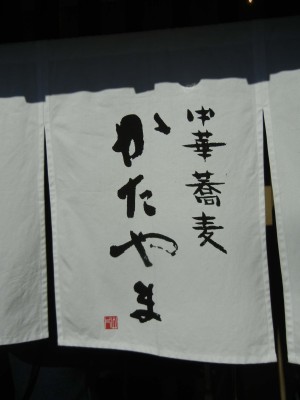 中華蕎麦
かたやま